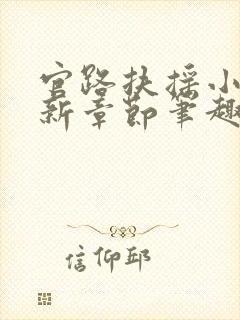 官路扶摇小
新章节笔趣
信仰邱